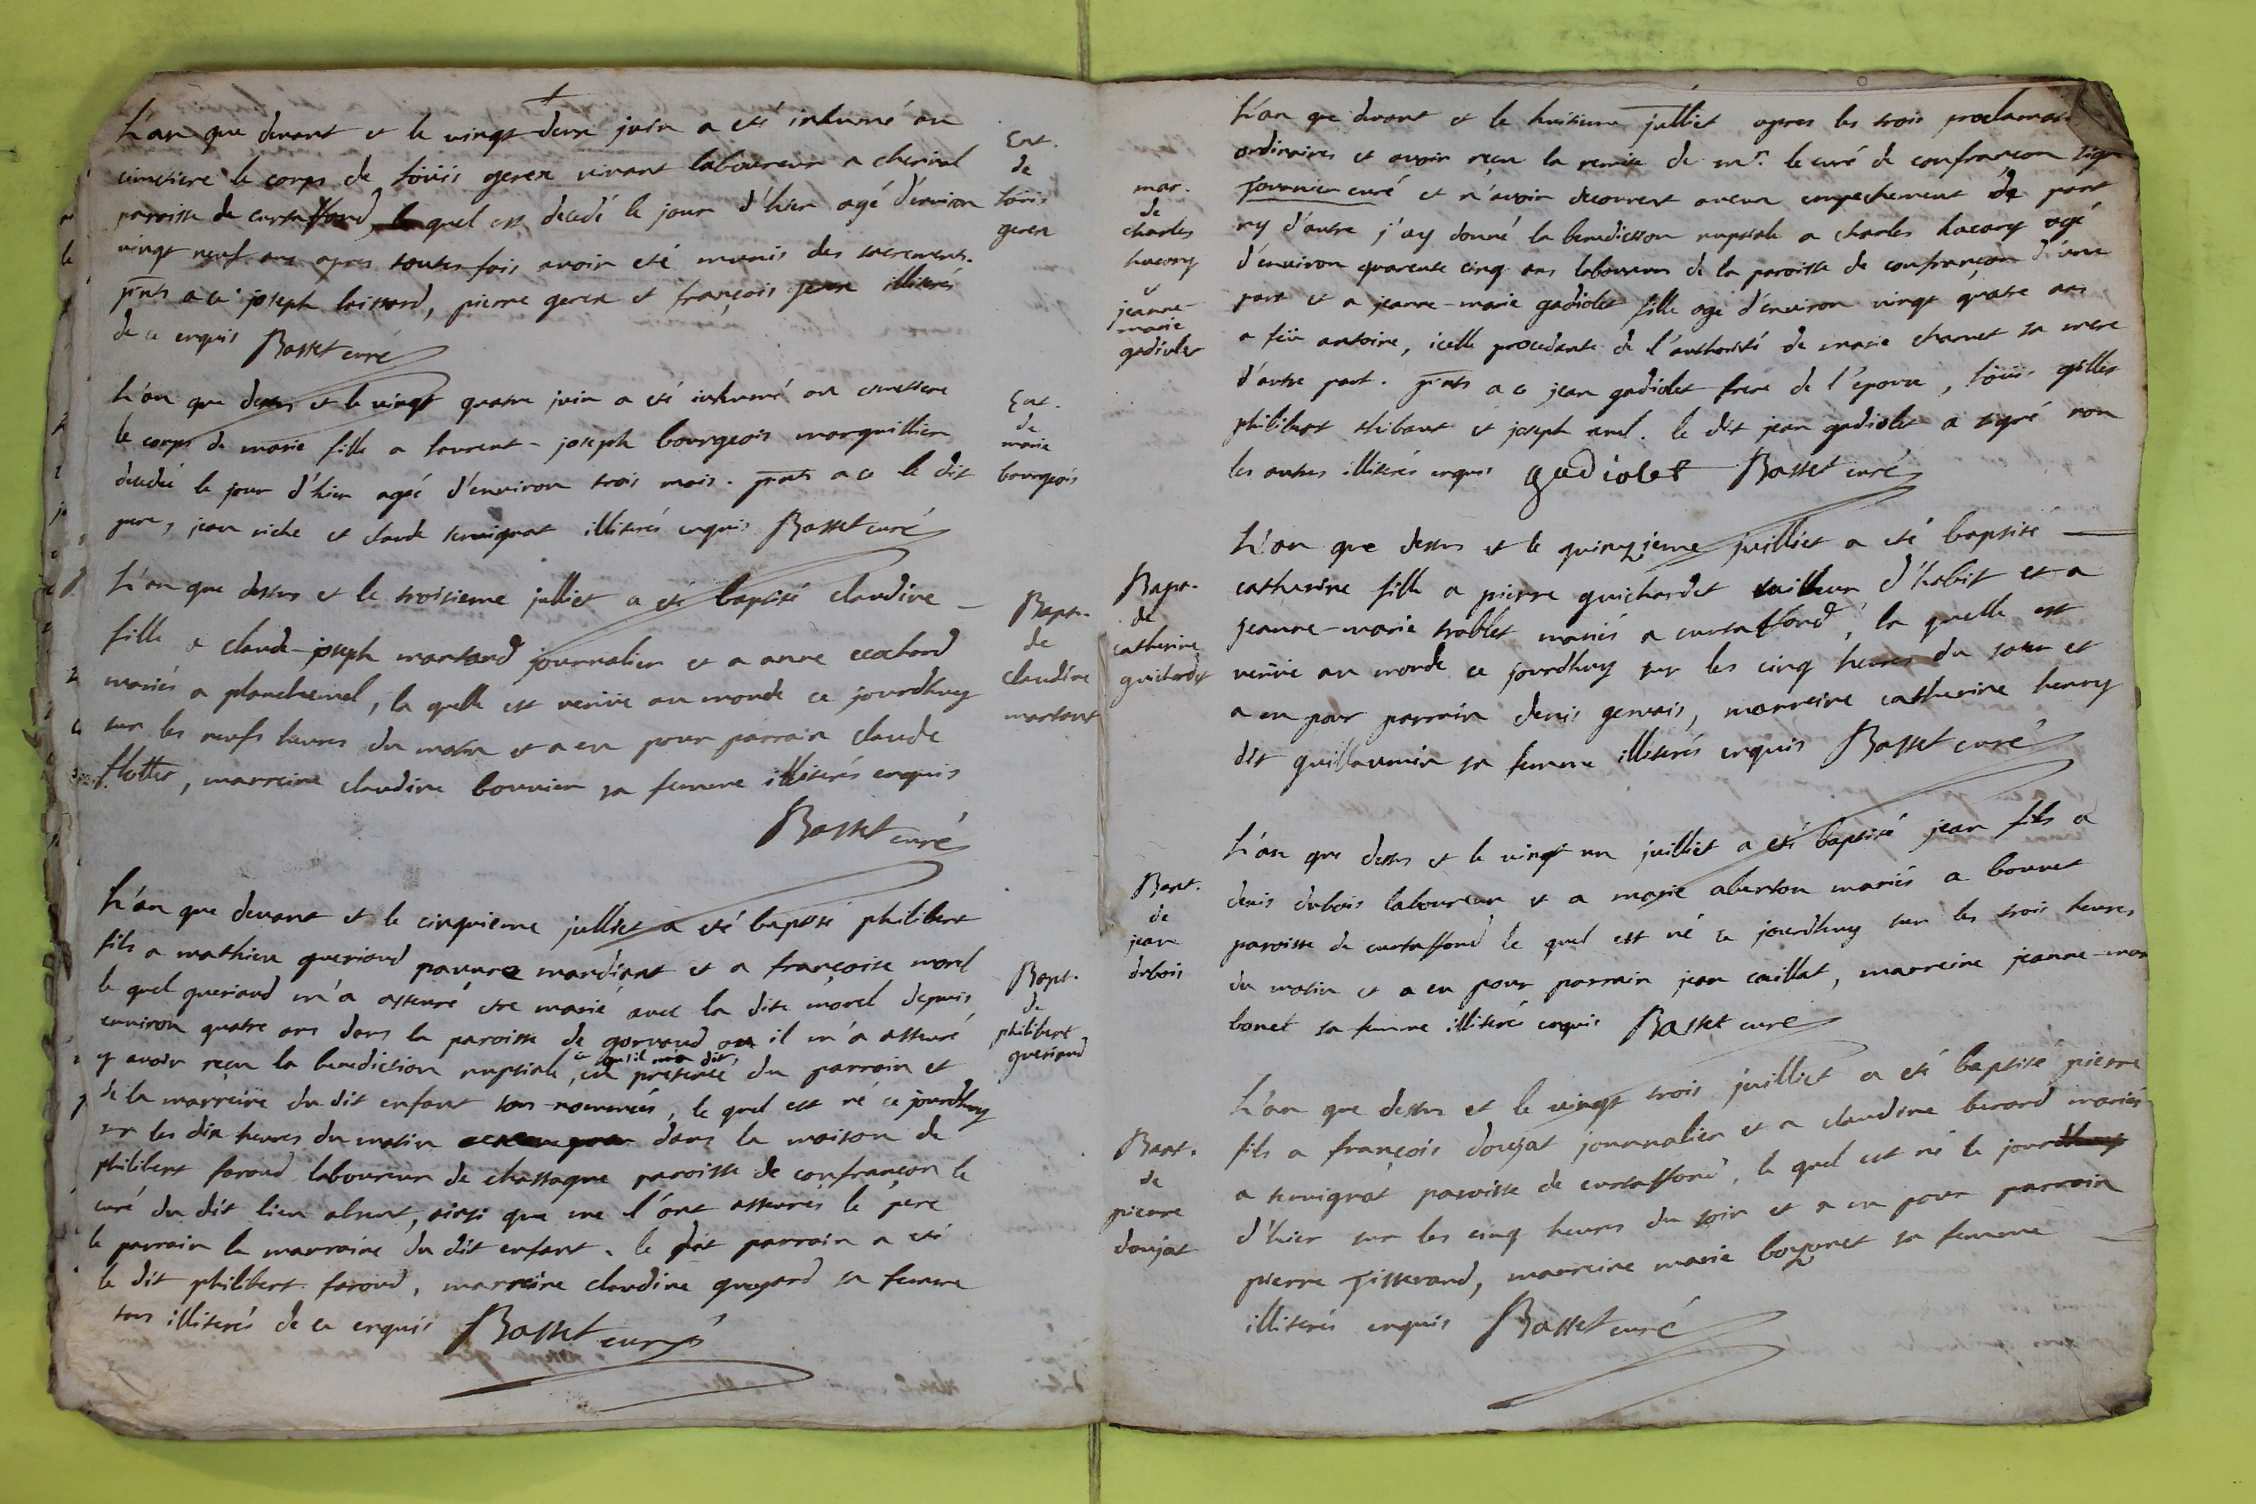 L'an que devant et le vingt-deux juin a eté inhumé au
cimetiere le corps de Loüis gerex vivant laboureur a cherinal
paroisse de curtaffond, le quel est decedé le jour d'hier agé d'environ
vingt neuf ans apres toutes fois avoir eté munis des sacrements.
pnts a ce joseph brissard, pierre gerex et françois gerex illiterés
de ce enquis Basset curé
Ent.
de
Loüis
gerex
L'an que dessus et le vingt quatre juin a eté inhumé au cimetiere
le corps de marie fille a laurent-joseph bourgeois marguillier
decedée le jour d'hier agée d'environ trois mois. pnts a ce le dit
pere, jean riche et claude sevignat illiterés enquis Basset curé
Ent.
de
marie
bourgeois
L'an que dessus et le troisieme julliet a eté baptisé claudine
fille a claude-joseph martand journalier et a anne cochard
mariés a planchemel, la quelle est venüe au monde ce jourdhuy
sur les neufs heures du matin et a eu pour parrain claude
flottes, marreine claudine bouvier sa femme illiterés enquis
Basset curé
Bapt.
de
claudine
martant
L'an que devant et le cinquieme julliet a eté baptisé philibert
fils a mathieu gueriaud pauvre mandiant et a françoise morel
le quel gueriaud m'a asseuré etre marié avec la dite morel depuis
environ quatre ans dans la paroisse de gorvaud ou il m'a asseuré
y avoir reçu la benediction nuptiale, ce qu'il m'a dit, en presence du parrain et
de la marreine du dit enfant sous-nommés, le quel est né ce jourdhuy
sur les dix heures du matin dans la maison de
philibert faroud laboureur de chassagne paroisse de confrançon le
curé du dit lieu absent, ainsi que me l'ont asseurés le pere
le parrain la marraine du dit enfant. le dit parrain a eté
le dit philibert faroud, marreine claudine guyard sa femme
tous illiterés de ce enquis Basset curé
Bapt.
de
philibert
gueriaud
L'an que devant et le huitieme julliet apres les trois proclamat
ordinaires et avoir reçu la remise de mr. le curé de confrançon sign
Tournier curé et n'avoir decouvert aucun empechement de part
ny d'autre j'ay donné la benediction nuptiale a charles lacory agé
d'environ quarente cinq ans laboureur de la paroisse de confrançon d'une
part et a jeanne-marie gadiolet fille agé d'environ vingt quatre ans
a feü antoine, icelle procedante de l'authorité de marie charnet sa mere
d'autre part. pnts a ce jean gadiolet frere de l'epouse, Loüis gilles
philibert thibaut et joseph avel. le dit jean gadiolet a signé non
les autres illiterés enquis gadiolet Basset curé
mar.
de
charles
lacory
et
jeanne-
marie
gadiolet
L'an que dessus et le quinzieme juilliet a eté baptisé
catherine fille a pierre guichardet tailleur d'habit et a
jeanne-marie trablet mariés a curtaffond, la quelle est
venüe au monde ce jourdhuy sur les cinq heures du soir et
a eu pour parrain denis gervais, marreine catherine henry
dit guillaumin sa femme illiterés enquis Basset curé
Bapt.
de
catherine
guichardet
L'an que dessus et le vingt un juilliet a eté baptisé jean fils a
denis dubois laboureur et a marie aberton mariés a bonnet
paroisse de curtaffond le quel est né ce jourdhuy sur les trois heures
du matin et a eu pour parrain jean caillat, marreine jeanne-mar
bonet sa femme illiterés enquis Basset curé
Bapt.
de
jean
dubois
L'an que dessus et le vingt trois juilliet a eté baptisé pierre
fils a françois doujat journalier et a claudine berard mariés
a sevignat paroisse de curtaffond, le quel est né le jourdhuy
d'hier sur les cinq heures du soir et a eu pour parrain
pierre Tisserand, marreine marie boyonet sa femme
illiterés enquis Basset curé
Bapt.
de
pierre
doujat